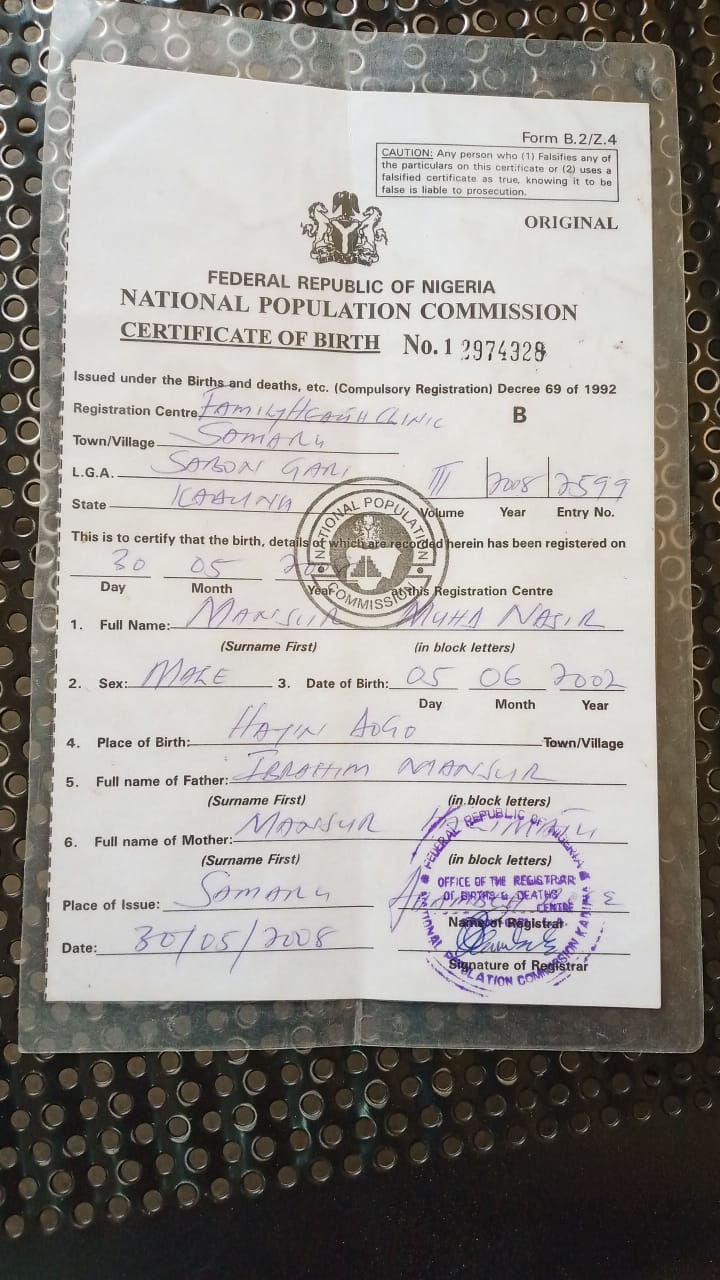 Form B.2/Z.4
CAUTION: Any person who (1) Falsifies any of
the particulars on this certificate or (2) uses a
falsified certificate as true, knowing it to be
false is liable to prosecution.
ORIGINAL
FEDERAL REPUBLIC OF NIGERIA
NATIONAL POPULATION COMMISSION
CERTIFICATE OF BIRTH No. 1 2974328
Issued under the Births and deaths, etc. (Compulsory Registration) Decree 69 of 1992
Registration Centre FAMILY HEALTH CLINIC B
Town/Village SAMARU
L.G.A. SABON GARI III 2008 2599
State KADUNA Volume Year Entry No.
This is to certify that the birth, details of which are recorded herein has been registered on
30 05
Day Month Year at this Registration Centre
NATIONAL POPULATION COMMISSION
1. Full Name: MANSUR MUHD NASIR
(Surname First) (in block letters)
2. Sex: MALE 3. Date of Birth: 05 06 2002
Day Month Year
4. Place of Birth: HAYIN DOGO Town/Village
5. Full name of Father: IBRAHIM MANSUR
(Surname First) (in block letters)
6. Full name of Mother: MANSUR
(Surname First) (in block letters)
Place of Issue: SAMARU
Name of Registrar
Date: 30/05/2008
Signature of Registrar
FEDERAL REPUBLIC OF NIGERIA
OFFICE OF THE REGISTRAR
OF BIRTHS & DEATHS
CENTRE
NATIONAL POPULATION COMMISSION KADUNA